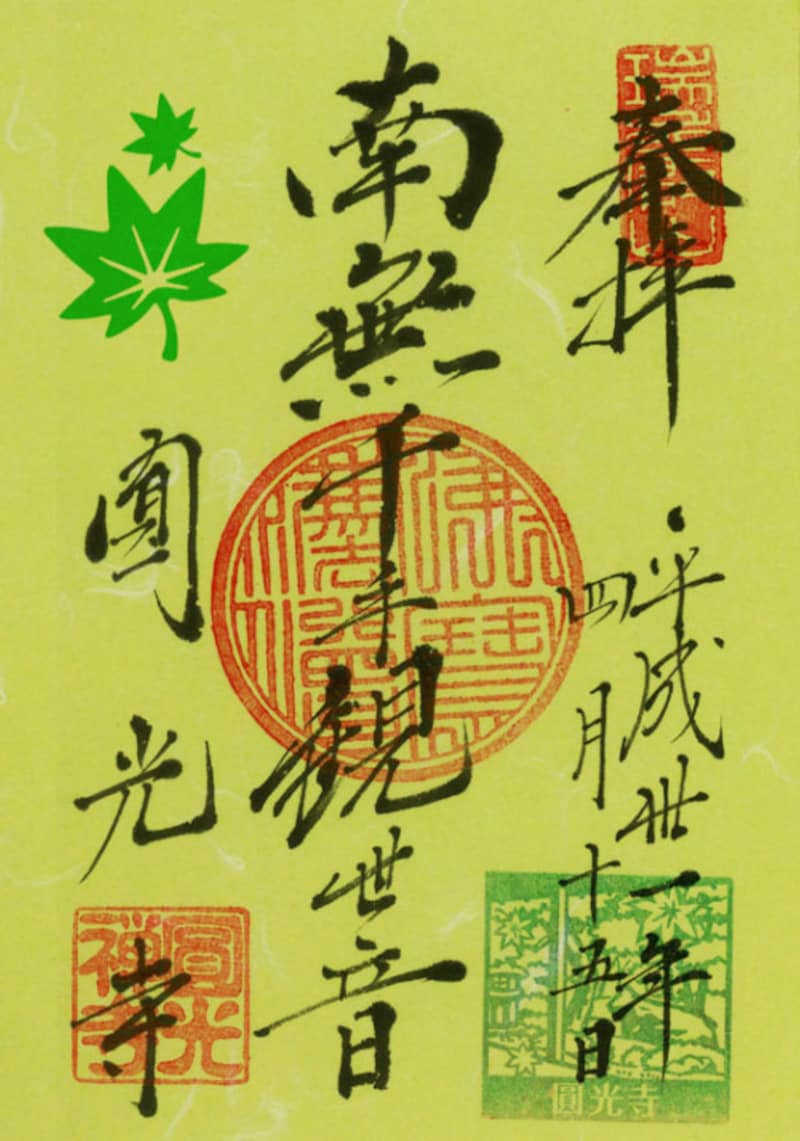 奉拝
平成卅一年
四月十五日
南無千手観世音
圓光寺
圓光禅寺
圓光寺